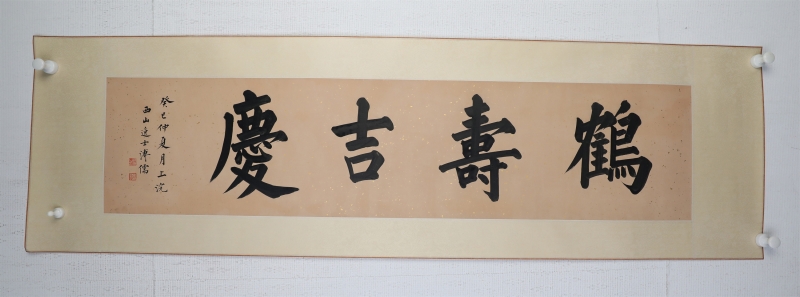 鶴壽吉慶
癸巳仲夏月上浣
西山逸士溥儒